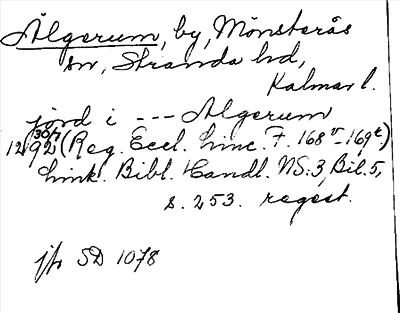 Älgerum, by, Mönsterås
sn, Stranda hd,
Kalmar l.
jord i --- Ælgerum
1292 30/7 (Reg. Eccl. Linc. F. 168v-169r)
Link. Bibl. Handl. NS:3, Bil. 5,
s. 253. regest.
jfr SD 1078